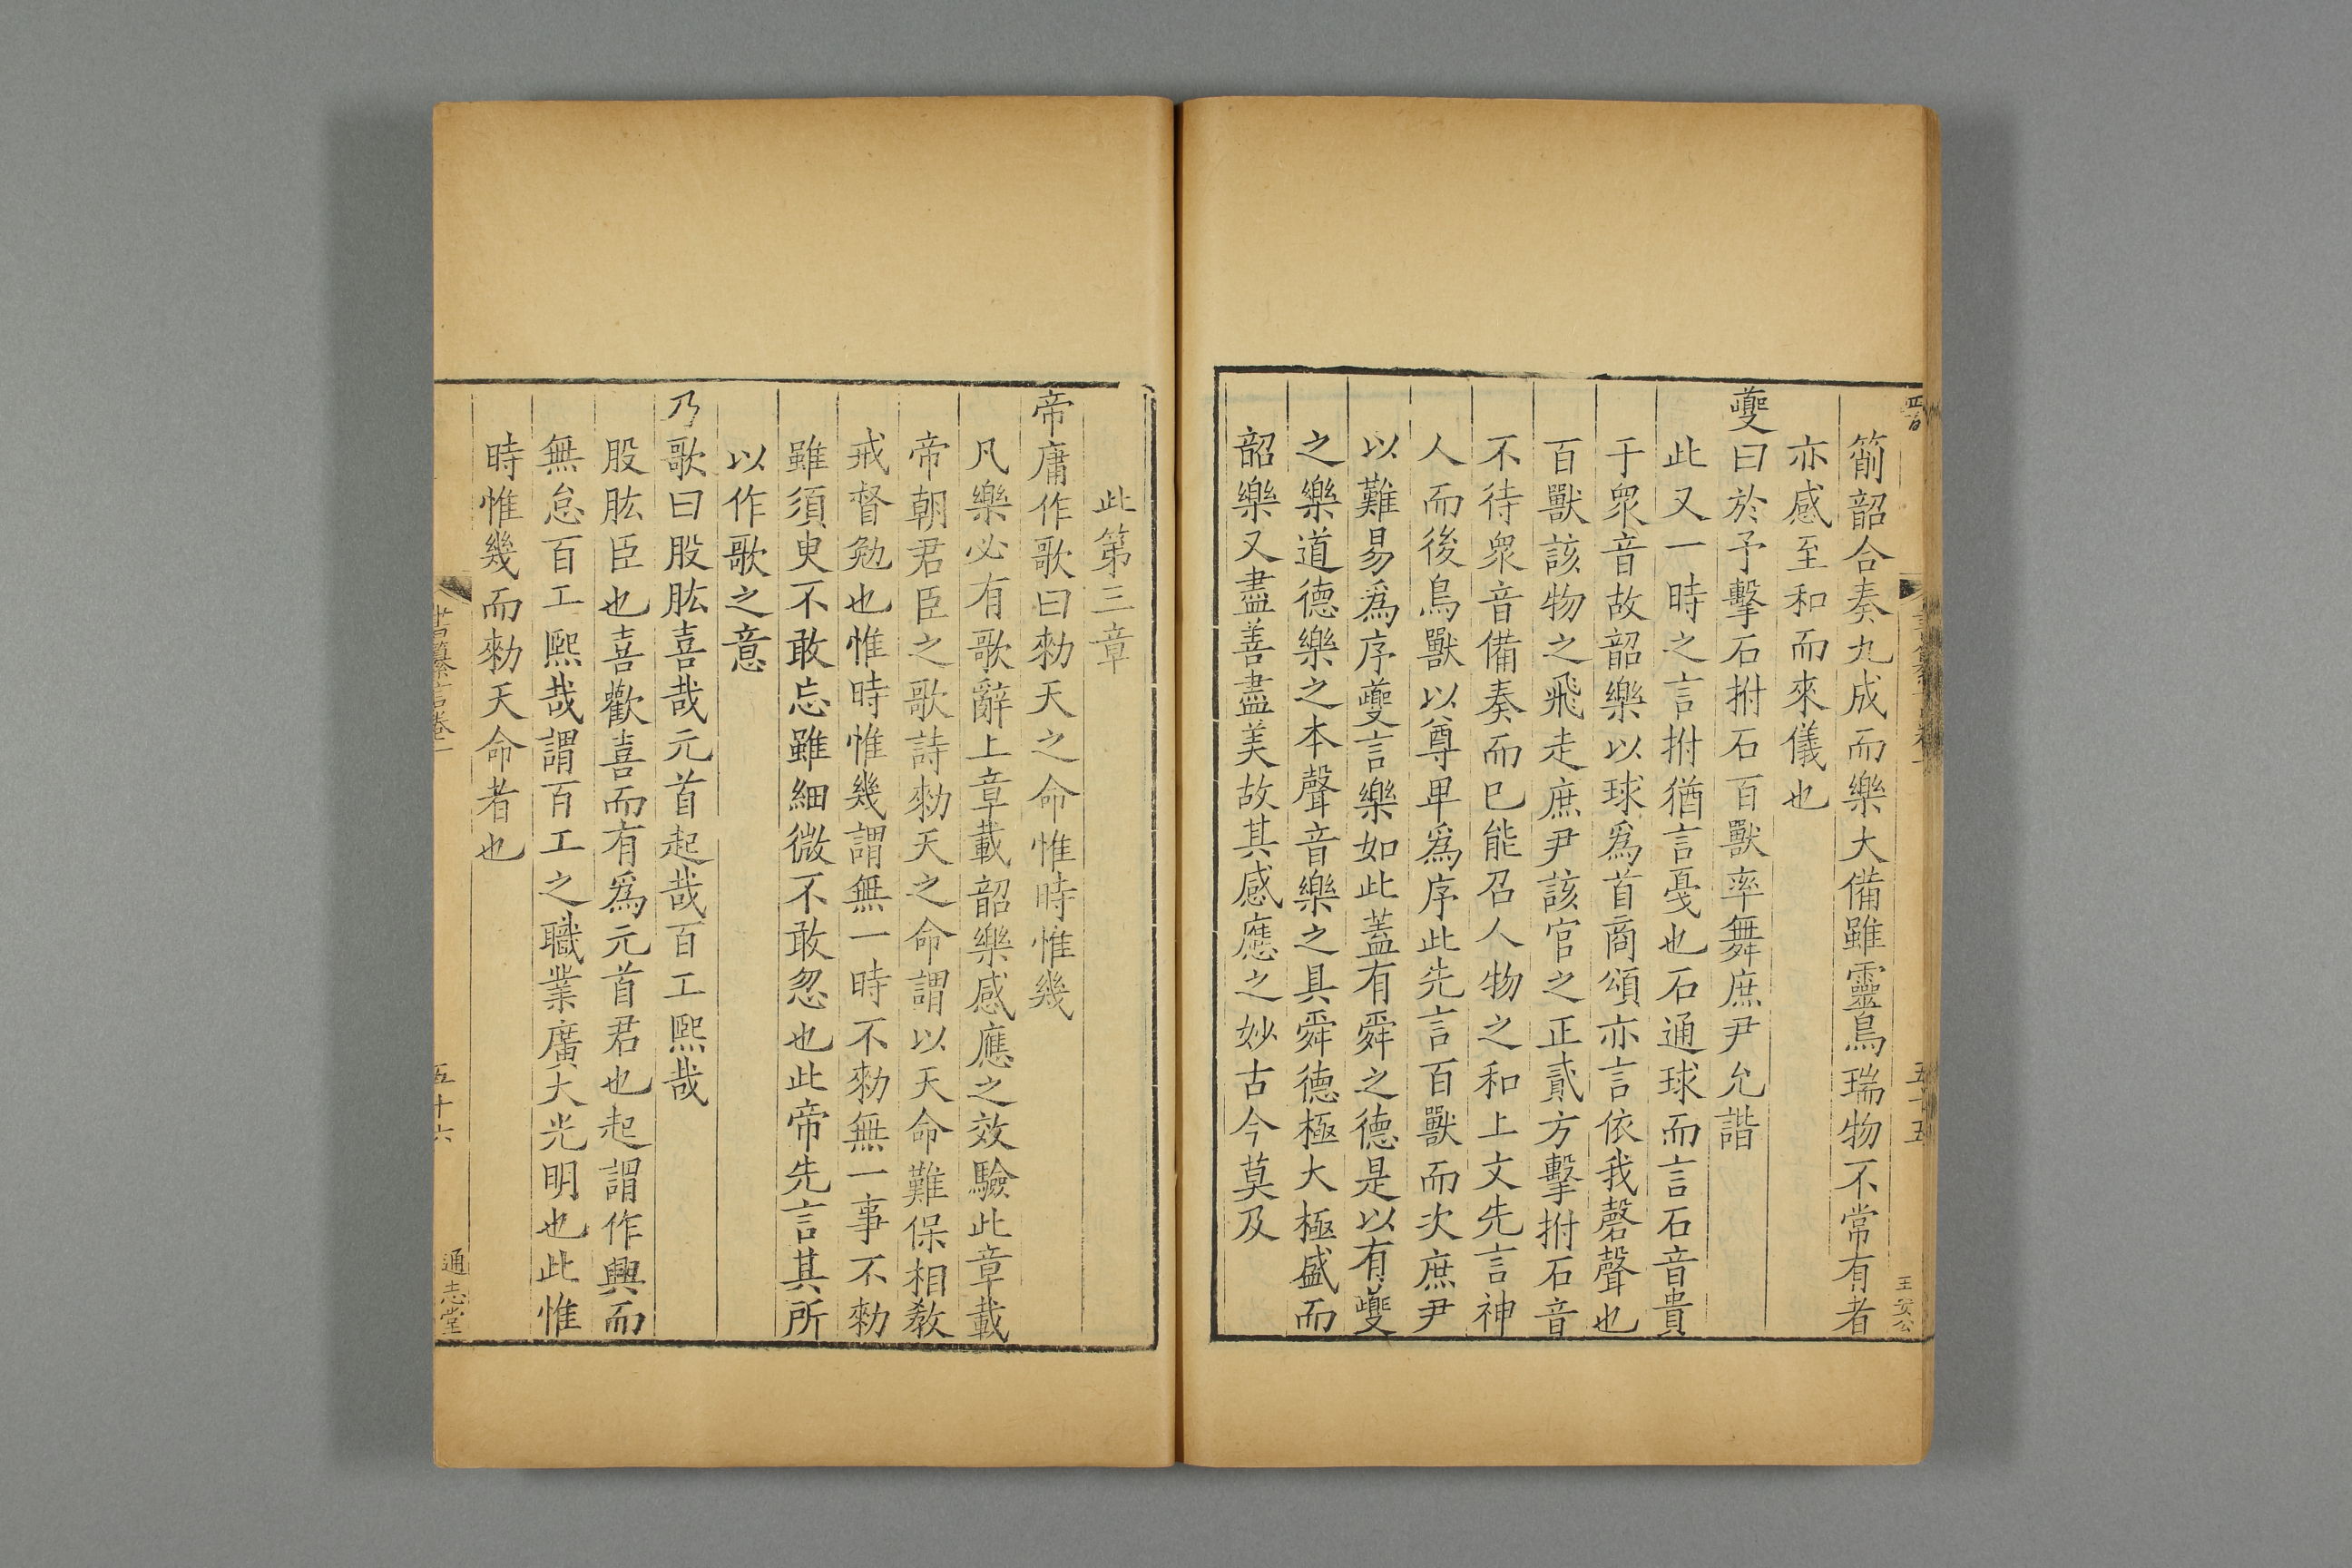 箾韶合奏九成而樂大備雖靈鳥瑞物不常有者
亦感至和而來儀也
夔曰於予擊石拊石百獸率舞庶尹允諧
此又一時之言拊猶言戛也石通球而言石音貴
于衆音故韶樂以球爲首商頌亦言依我磬聲也
百獸該物之飛走庶尹該官之正貳方擊拊石音
不待衆音備奏而巳能召人物之和上文先言神
人而後鳥獸以尊卑爲序此先言百獸而次庶尹
以難易爲序夔言樂如此蓋有舜之德是以有夔
之樂道德樂之本聲音樂之具舜德極大極盛而
韶樂又盡善盡美故其感應之妙古今莫及
此第三章
帝庸作歌曰勑天之命惟時惟幾
凡樂必有歌辭上章載韶樂感應之效驗此章載
帝朝君臣之歌詩勑天之命謂以天命難保相敎
戒督勉也惟時惟幾謂無一時不勑無一事不勑
雖須臾不敢忘雖細微不敢忽也此帝先言其所
以作歌之意
乃歌曰股肱喜哉元首起哉百工熙哉
股肱臣也喜歡喜而有爲元首君也起謂作興而
無怠百工熙哉謂百工之職業廣大光明也此惟
時惟幾而勑天命者也
書纂言卷一
五十六
通志堂
五十五
王安公